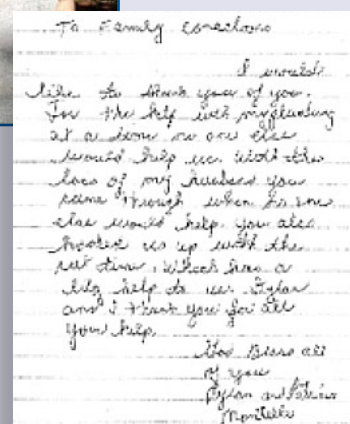 To Family Conections
I would
like to thank you of you.
For the help with my plumbing
at a time no one else
would help us. With the
loss of my husband you
came through when no one
else would help. you also
hooked us up with the
ret time. Which was a
big help to us. Dylan
and I thank you for all
your help.
God Bless all
of you
Dylan and